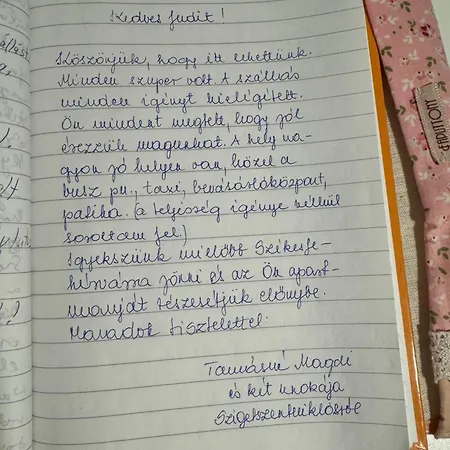 Kedves Judit!
Köszönjük, hogy itt lehettünk.
Minden szuper volt. A szállás
minden igényt kielégített.
Ön mindent megtett, hogy jól
érezzük magunkat. A hely na-
gyon jó helyen van, közel a
busz pu., taxi, bevásárlóközpont,
patika. (a teljesség igénye nélkül
soroltam fel)
Igyekszünk mielőbb Székesfe-
hérvárra jönni és az Ön apart-
manját részesítjük előnybe.
Maradok tisztelettel:
Tamásné Magdi
és két unokája
Szigetszentmiklósról